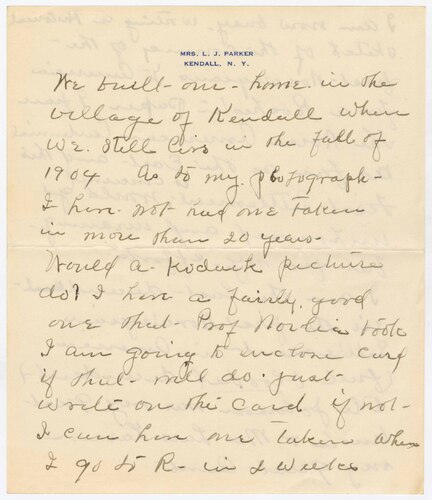 MRS. L. J. PARKER
KENDALL, N. Y.
We built our home in the
village of Kendall when
we still live in the fall of
1904 As to my photograph-
I have not had one taken
in more than 20 years-
Would a Kodack picture
do? I have a fairly good
one that Prof Nordlie took
I am going to enclose card
if that will do just
write on this card if not-
I can have one taken when
I go to R- in 2 weeks